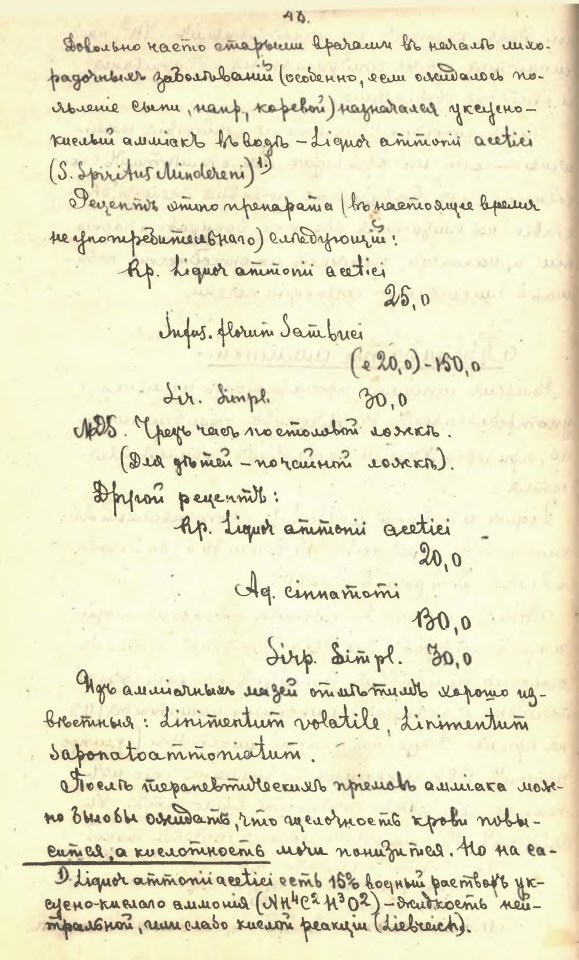 48.
Довольно часто старыми врачами въ началѣ лихо-
радочныхъ заболѣваній (особенно, если ожидалось по-
явленіе сыпи, напр, коревой) назначался уксусно-
кислый амміакъ въ водѣ – Liquor ammonii acetici
(S. Spiritus Mindereri) 1.)
Рецептъ этого препарата (въ настоящее время
не употребительнаго) слѣдующій:
Rp. Liquor ammonii acetici
25,0
Infus. florum Sambuci
(e 20,0) – 150,0
Sir. Simpl. 30,0
MDS. Чрезъ часъ по столовой ложкѣ.
(Для дѣтей – по чайной ложкѣ).
Другой рецептъ:
Rp. Liquor ammonii acetici
20,0
Aq. cinnamomi
130,0
Sirp. Simpl. 30,0
Изъ амміачныхъ мазей отмѣтимъ хорошо из-
вѣстныя: Linimentum volatile, Linimentum
saponatoammoniatum.
Послѣ терапевтическихъ пріемовъ амміака мож-
но было бы ожидать, что щелочность крови повы-
сится, а кислотность мочи понизится. Но на са-
1) Liquor ammonii acetici есть 15% водный растворъ ук-
сусно-кислаго аммонія (NH⁴C²H³O²) – жидкость ней-
тральной, или слабо кислой реакціи (Liebreich).